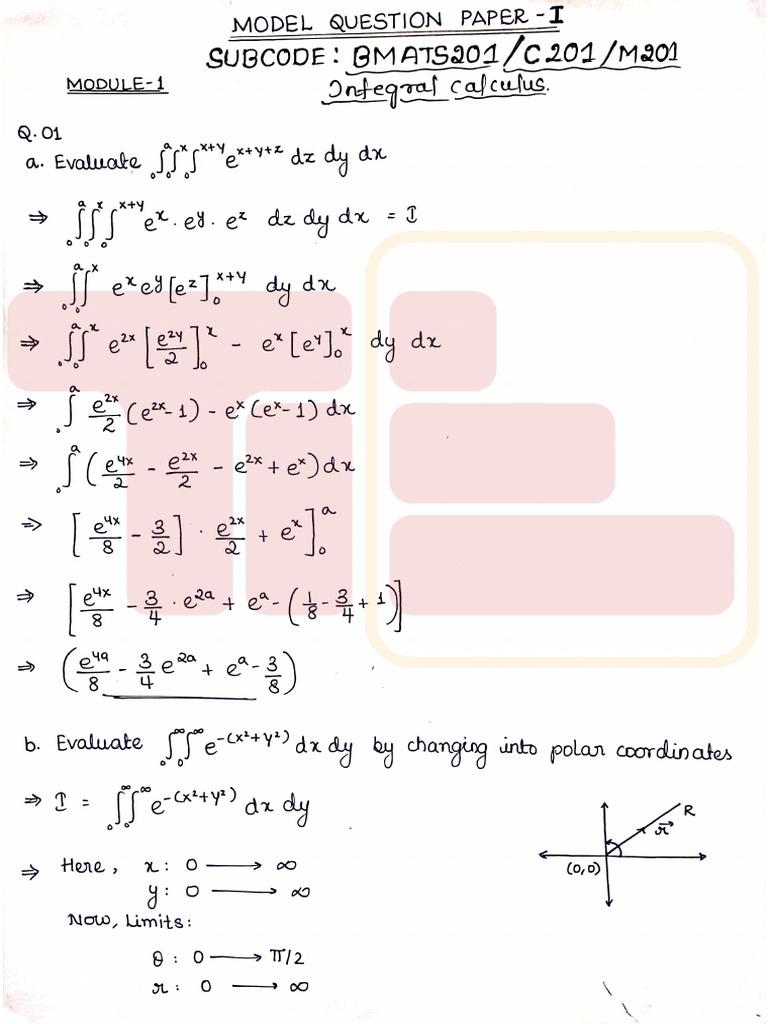 MODEL QUESTION PAPER - I
SUBCODE: BMATS201/C201/M201
MODULE-1
Integral Calculus.
Q.01
a. Evaluate ∫₀ᵃ∫₀ˣ∫₀ˣ⁺ʸ e^(x+y+z) dz dy dx
⇒ ∫₀ᵃ∫₀ˣ∫₀ˣ⁺ʸ e^x · e^y · e^z dz dy dx = I
⇒ ∫₀ᵃ∫₀ˣ e^x e^y [e^z]₀^(x+y) dy dx
⇒ ∫₀ᵃ∫₀ˣ e^2x [e^2y/2]₀^x - e^x [e^y]₀^x dy dx
⇒ ∫₀ᵃ e^2x/2 (e^2x - 1) - e^x (e^x - 1) dx
⇒ ∫₀ᵃ (e^4x/2 - e^2x/2 - e^2x + e^x) dx
⇒ [e^4x/8 - 3/2] · e^2x/2 + e^x]₀^a
⇒ [e^4x/8 - 3/4 · e^2a + e^a - (1/8 - 3/4 + 1)]
⇒ (e^4a/8 - 3/4 e^2a + e^a - 3/8)
b. Evaluate ∫₀^∞∫₀^∞ e^-(x²+y²) dx dy by changing into polar coordinates
⇒ I = ∫₀^∞∫₀^∞ e^-(x²+y²) dx dy
R
r⃗
(0,0)
⇒ Here, x: 0 ⟶ ∞
y: 0 ⟶ ∞
Now, Limits:
θ: 0 ⟶ π/2
r: 0 ⟶ ∞